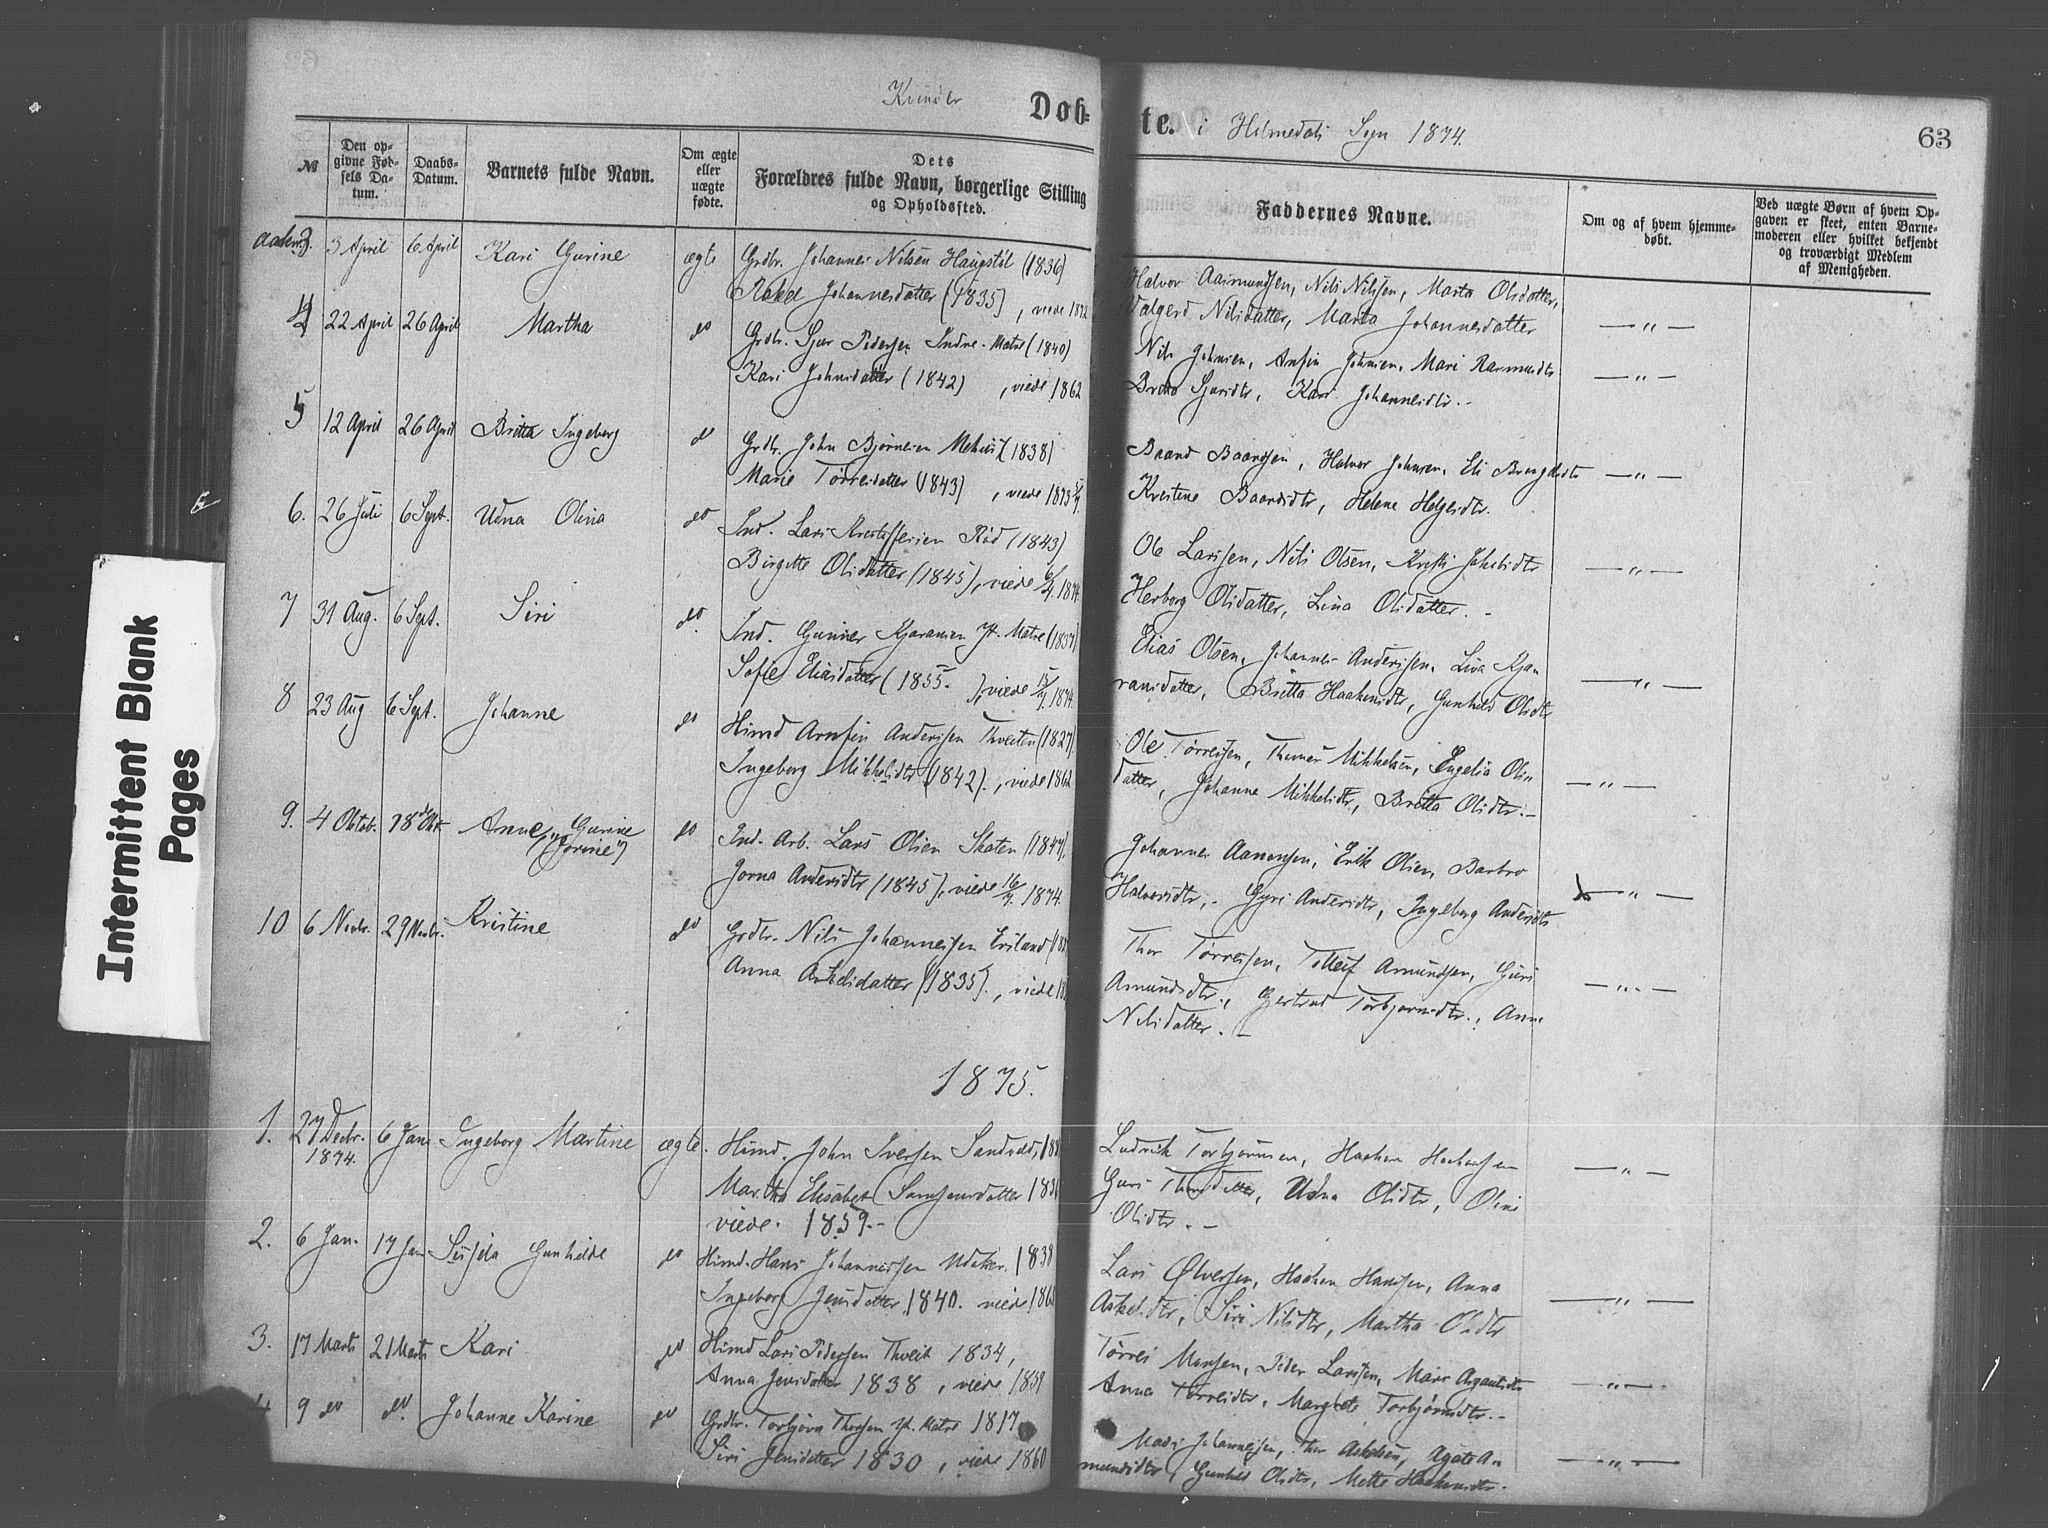 Kvinder
Døb-
te. i Holmedals Sogn 1874.
63
№
Den op-
givne Fød-
sels Da-
tum.
Daabs-
Datum.
Barnets fulde Navn.
Om ægte
eller
uægte
fødte.
Dets
Forældres fulde Navn, borgerlige Stilling
og Opholdssted.
Faddernes Navne.
Om og af hvem hjemme-
døbt.
Ved uægte Børn af hvem Op-
gaven er skeet, enten Barne-
moderen eller hvilket bekjendt
og troværdigt Medlem
af Menigheden.
3. 3 April 6 April Kari Gurine ægte Grdbr. Johannes Nilsen Haugstøl (1836)
Johannesdatter (1835), viede 1872
Halvor Aamundsen, Nils Nilssen, Marta Olsdatter,
Valgerd Nilsdatter, Marta Johannesdatter — " —
4 22 April 26 April Martha do Grdbr. Sjur Pedersen Indre-Matre (1840)
Kari Johnsdatter (1842), viede 1862
Nils Johnsen, Anfin Johnsen, Mari Rasmundsdtr — " —
Britta Sjursdtr, Kari Johannesdtr. -
5 12 April 26 April Britta Ingeborg do Grdbr. John Bjørnesen Mehus (1838)
Marie Tørresdatter (1843), viede 1873
Baard Baardsen, Halvor Johnsen, Eli — " —
Kristine Baardsdtr, Helene Helgesdtr.
6. 26 Juli 6 Sept. Udna Olina do Ind. Lars Kristoffersen Rød (1843)
Birgitte Olsdatter (1845), viede 6/4 1874.
Ole Larssen, Nils Olsen, Kristi Jakobsdtr — " —
Herborg Olsdatter, Lina Olsdatter. -
7 31 Aug. 6 Sept. Siri do. Ind. Gunner Kjaransen Yt. Matre (1837)
Sofie Eliasdatter (1855.), viede 15/4 1874.
Elias Olsen, Johannes Anderssen, Lisa Kja-
ransdatter, Britta Haakensdtr, Gunhild Olsdtr — " —
8 23 Aug 6 Sept. Johanne do Husmd Arnfin Anderssen Thveiten (1827)
Ingeborg Mikkelsdtr (1842)., viede 1862
Ole Tørressen, Thomas Mikkelsen, Engelia Ols-
datter, Johanne Mikkelsdtr, Britta Olsdtr. — — " —
9. 4 Oktob. 18d Okt. Anne Gurine do Ind. Arb. Lars Olsen Skaten (1847).
("Jorine")
Jorna Andersdtr (1845), viede 16/4 1874.
Johannes Aanonsen, Erik Olsen, Barbro
Halvorsdtr, - Guri Andersdtr, Ingeborg Andersdtr — " —
10 6 Novbr. 29 Novbr. Kristine do Grdbr. Nils Johannessen Eriland (18
Anna Askelsdatter (1835)., viede 18
Thor Tørressen, Tolleif Amundsen, Guri
Amundsdtr., Gertrud Torbjørnsdtr., Anna — " —
Nilsdatter. -
1875.
1. 27 Decbr. 6 Jan. Ingeborg Martine ægte. Husmd. John Iversen Sandvold, 18
1874.
Martha Elisabet Samsonsdatter 183
viede. 1859. -
Ludvik Torbjørnsen, Haaken Haakensen
Guri Thorsdatter, Udna Olsdtr, Oline — " —
Olsdtr. -
2. 6 Jan. 17 Jan Gunhilde do Husmd. Hans Johannessen Udaker. 1838
Ingeborg Jensdatter 1840. viede 186
Lars Ølversen, Haaken Hanssen, Anna
Askelsdtr, Siri Nilsdtr, Martha Olsdtr — " —
3. 17 Marts 21 Marts Kari do Husmd Lars Pedersen Thveit 1834,
Anna Jensdatter 1838, viede 1859
Tørres Monsen, Peder Larssen, Mari
Anna Tørresdtr, Margrete Torbjørnsdtr. - — " —
4 9 do do. Johanne Karine do Grdbr. Torbjørn Thorsen Yt. Matre 1817
Siri Jensdatter 1830, viede 1860
Mads Johannessen, Thor Askelsen, Agate A-
mundsdtr, Gunhild Olsdtr, Mette Haakensdtr. — " —
Intermittent Blank
Pages